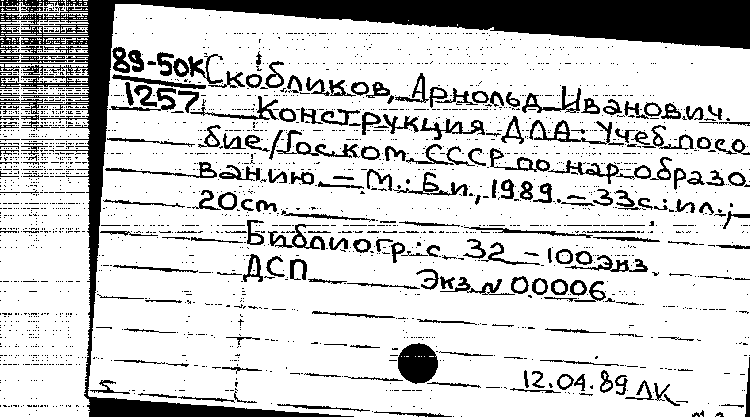 89-50К Скобликов, Арнольд Иванович.
1257 Конструкция ДЛА: Учеб. посо
бие/Гос. ком. СССР по нар. образо
ванию. – М.: Б.и., 1989. – 33с.: ил.;
20см.
Библиогр.: с. 32 – 100 экз.
ДСП Экз. N 00006.
12.04.89 ЛК
5